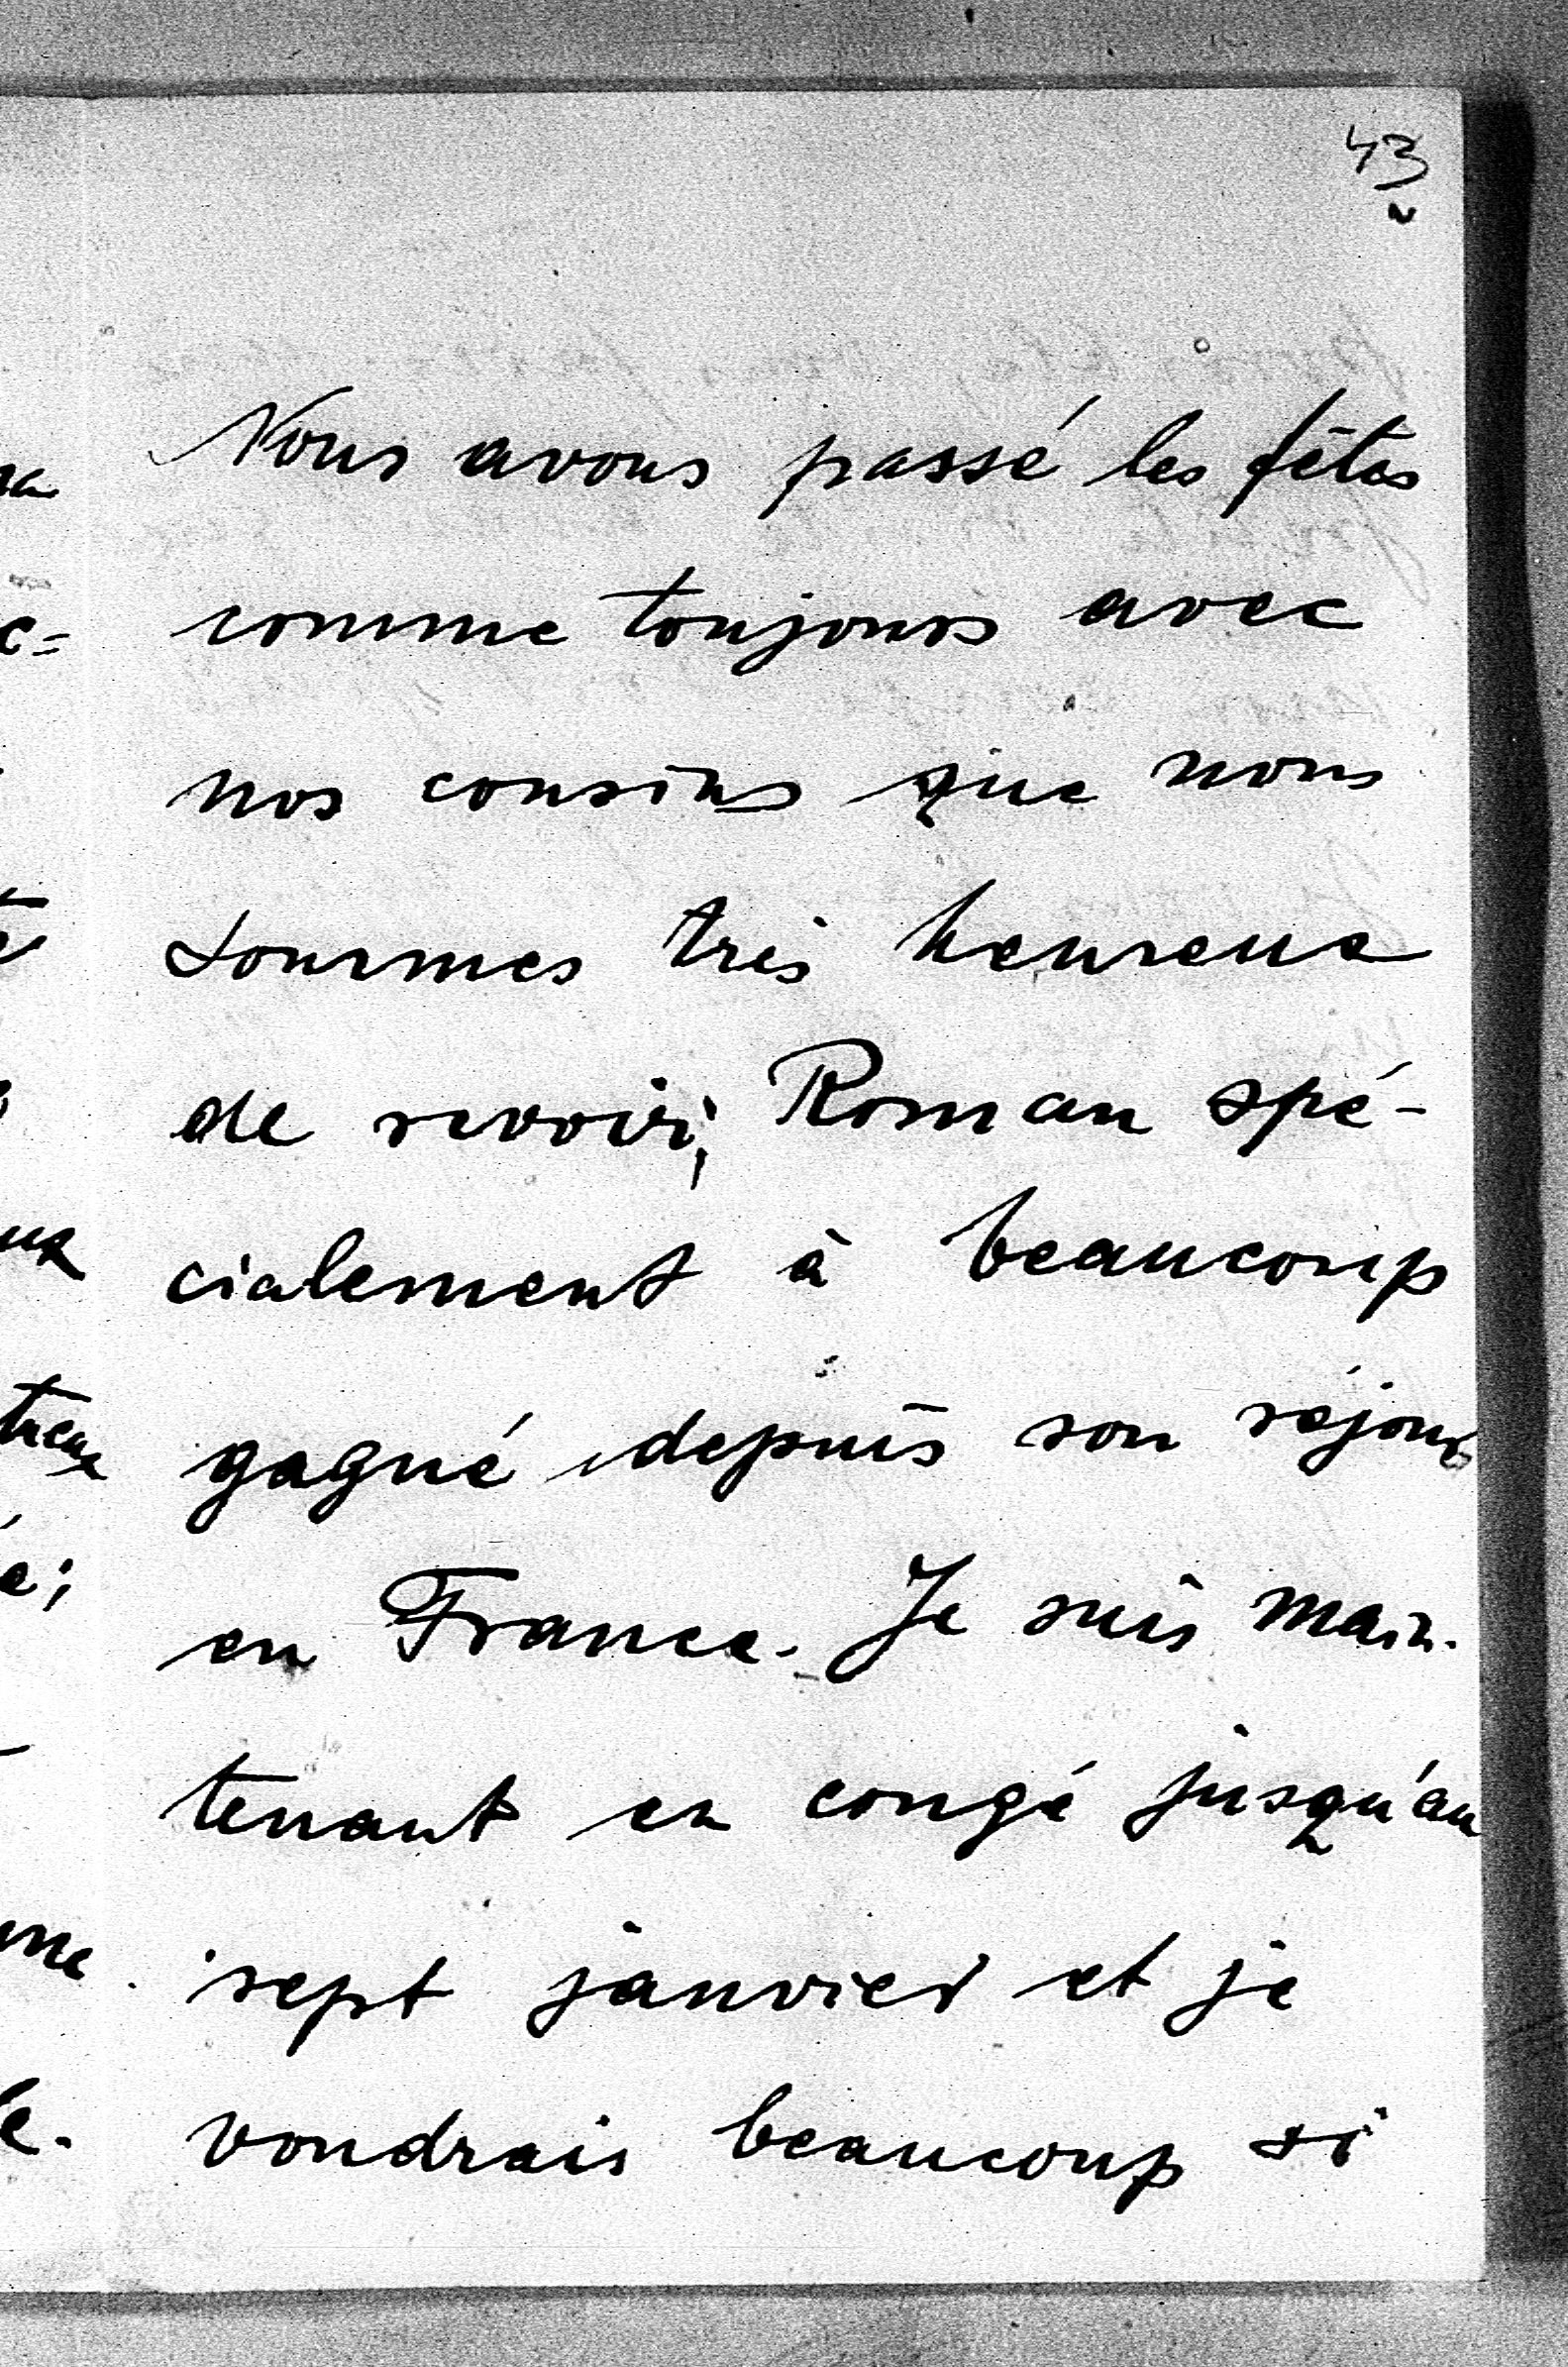 43
Nous avons passé les fêtes
comme toujours avec
nos cousins que nous
sommes très heureux
de revoir; Roman spé-
cialement à beaucoup
gagné depuis son séjour
en France. Je suis main-
tenant en congé jusqu'au
sept janvier et je
voudrais beaucoup si